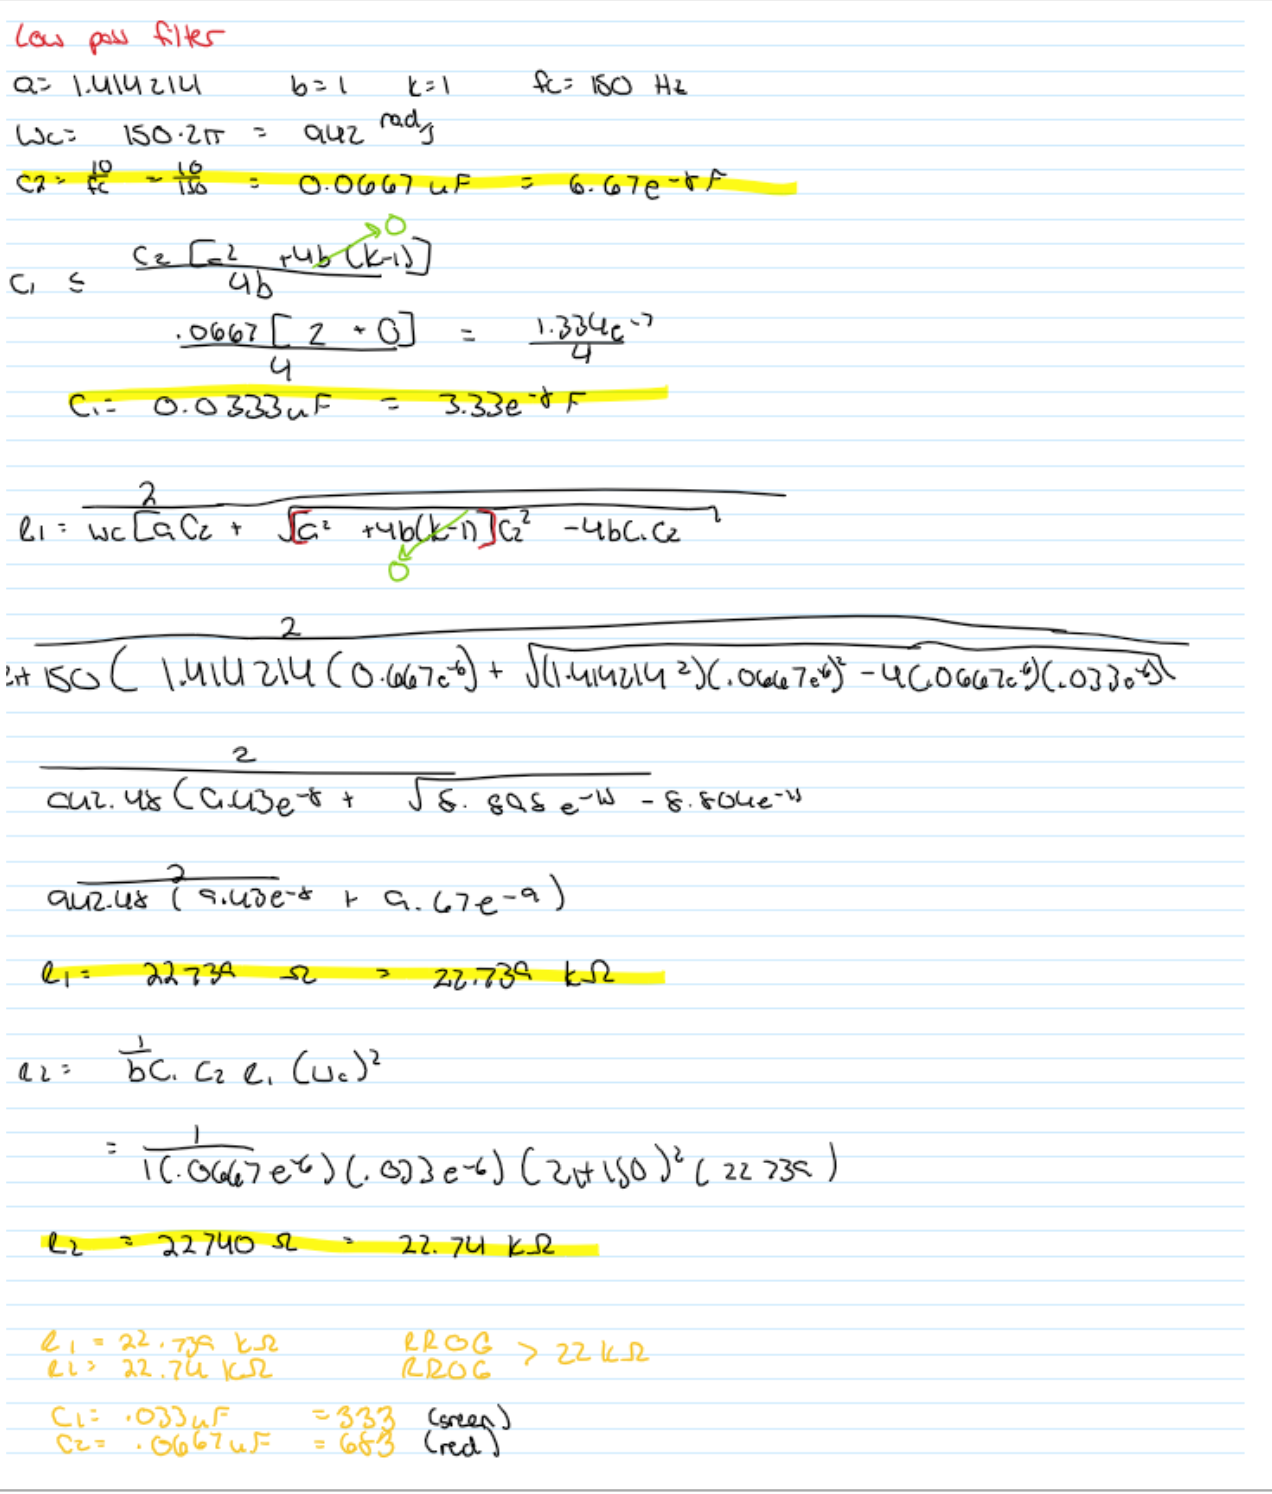 Low pass filter
a= 1.414214 b=1 k=1 fc= 150 Hz
Wc= 150·2π = 942 rad/s
C2= 10/fc = 10/150 = 0.0667 uF = 6.67e-8 F
C1 ≤ C2 [a² +4b (k-1)] / 4b → 0
.0667 [ 2 + 0 ] / 4 = 1.334e-7 / 4
C1= 0.0333uF = 3.33e-8 F
R1= 2 / Wc [a C2 + √[a² +4b(k-1)]C2² -4bC1C2
0
2 / 2π 150 ( 1.414214 (0.667e-6) + √(1.414214²)(.0667e-6)² -4(.0667e-6)(.033e-6)
2 / 942.48 (9.43e-8 + √8.898e-15 - 8.804e-15
2 / 942.48 ( 9.43e-8 + 9.67e-9 )
R1= 22739 Ω = 22.739 kΩ
R2= 1 / bC1 C2 R1 (Wc)²
= 1 / 1(.0667e-6) (.033e-6) (2π150)² (22739)
R2 = 22740 Ω = 22.74 kΩ
R1 = 22.739 kΩ RROG > 22 kΩ
R2= 22.74 kΩ RROG
C1= .033uF =333 (green)
C2= .0667uF = 683 (red)